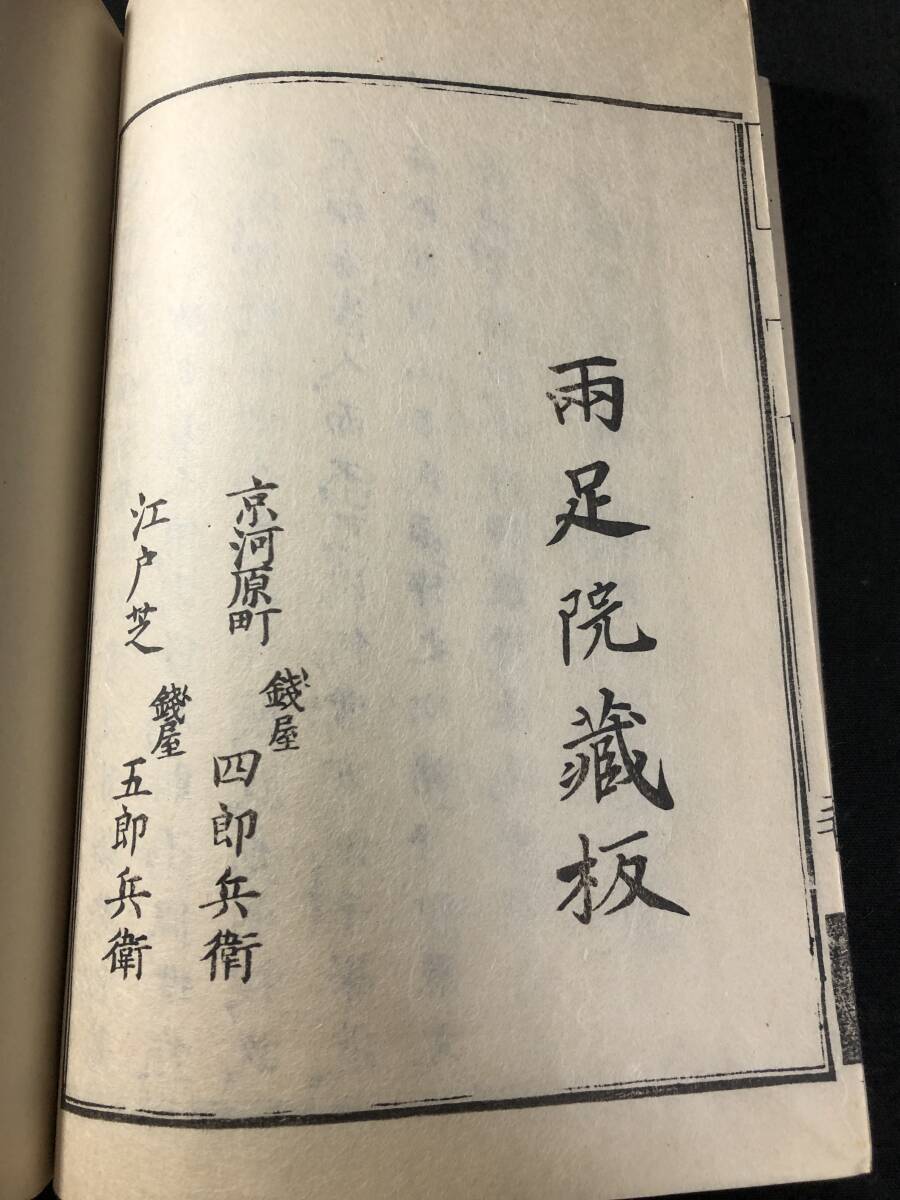 兩足院藏板
京河原町
錢屋
四郎兵衛
江戸芝
錢屋
五郎兵衛